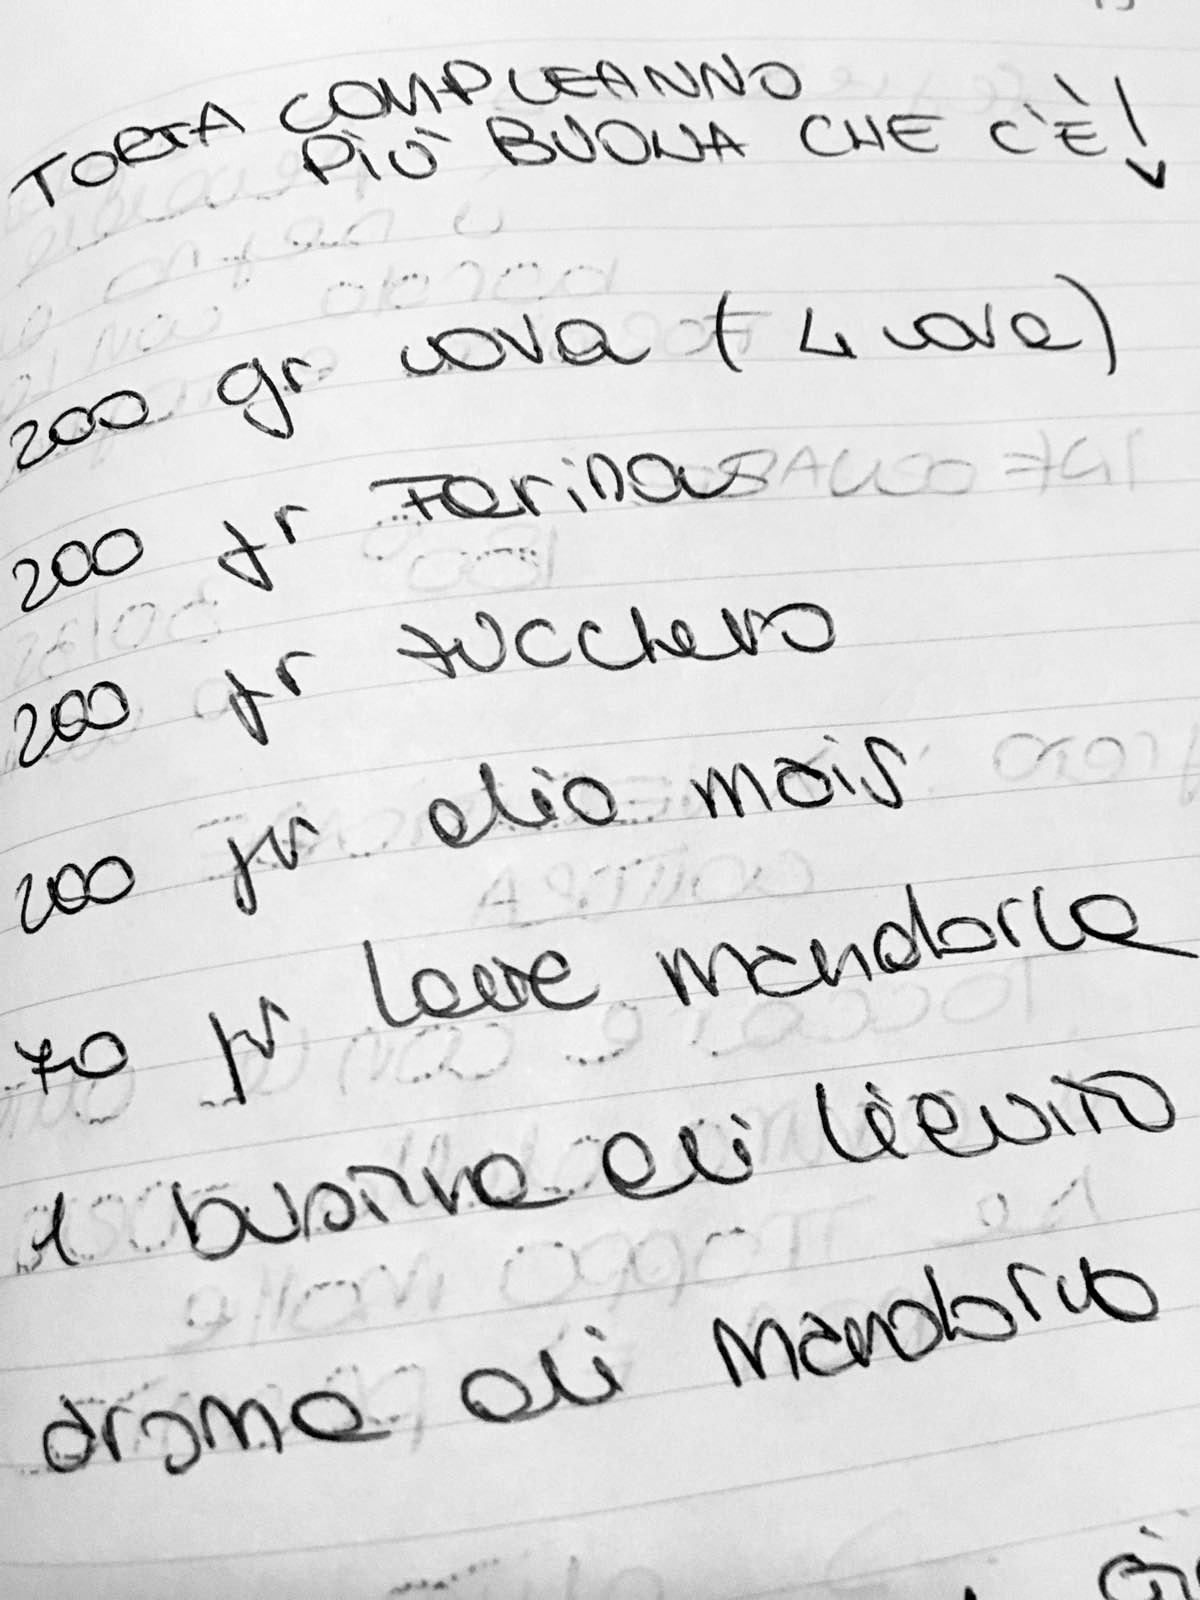 TORTA COMPLEANNO
PIÙ BUONA CHE C'È!
200 gr uova (4 uova)
200 gr Farina
200 gr zucchero
200 gr olio mais
70 gr latte mandorla
1 bustina di lievito
aroma di mandorla